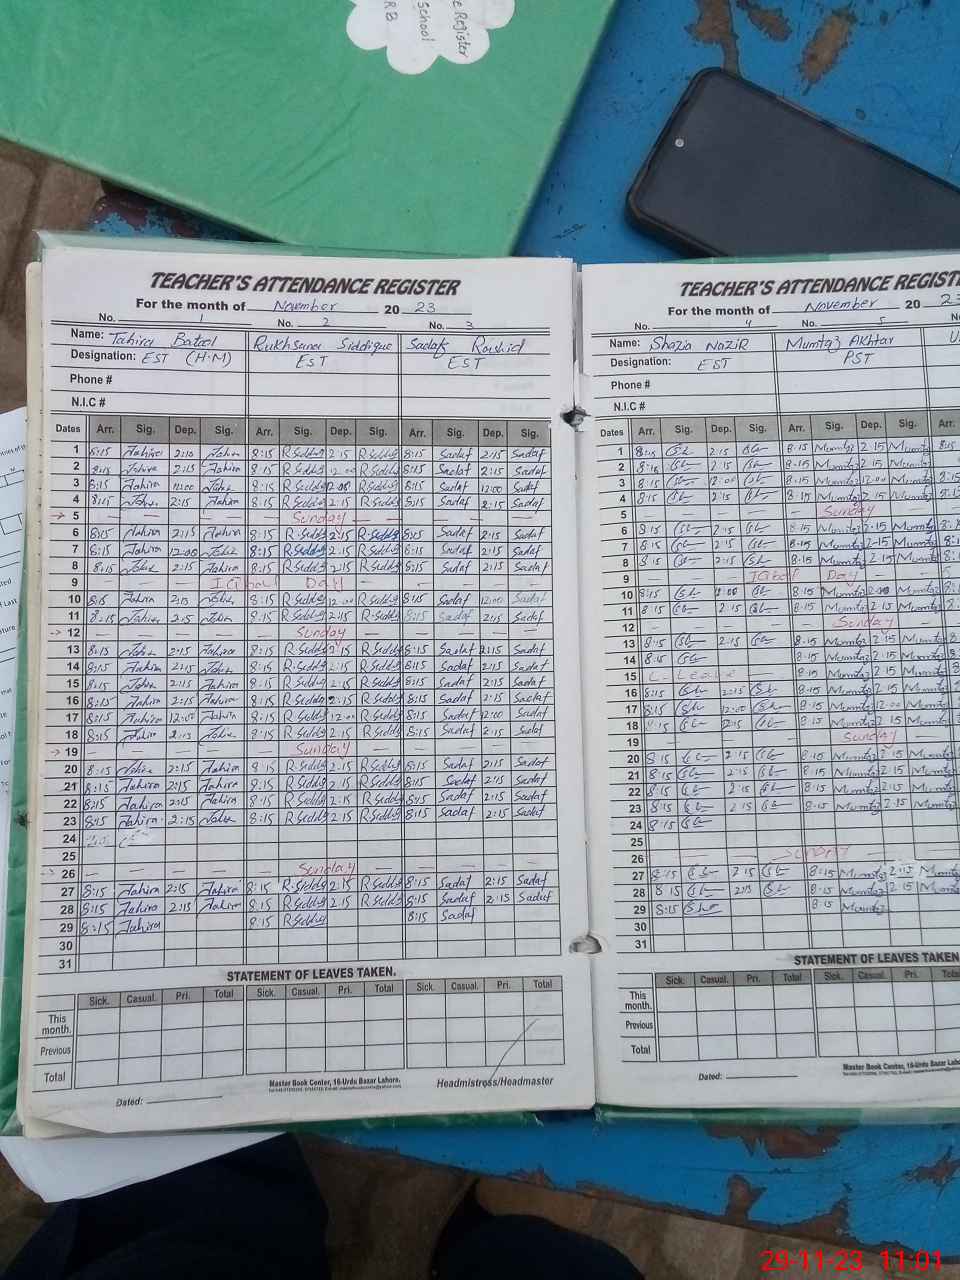 e Register
school
RB
TEACHER'S ATTENDANCE REGISTER
For the month of November 20 23
No. 1 No. 2 No. 3
Name: Tahira Batool Rukhsana Siddique Sadaf Rashid
Designation: EST (H.M) EST EST
Phone #
N.I.C #
Dates Arr. Sig. Dep. Sig. Arr. Sig. Dep. Sig. Arr. Sig. Dep. Sig.
1 8:15 Tahira 2:15 Tahira 8:15 R Siddiq 2:15 R Siddiq 8:15 Sadaf 2:15 Sadaf
2 8:15 Tahira 2:15 Tahira 8:15 R Siddiq R Siddiq 8:15 Sadaf 2:15 Sadaf
3 8:15 Tahira 12:00 Tahira 8:15 R Siddiq 12:00 R Siddiq 8:15 Sadaf 12:00 Sadaf
4 8:15 Tahira 2:15 Tahira 8:15 R Siddiq 2:15 R Siddiq 8:15 Sadaf 2:15 Sadaf
5 Sunday
6 8:15 Tahira 2:15 Tahira 8:15 R Siddiq 2:15 R Siddiq 8:15 Sadaf 2:15 Sadaf
7 8:15 Tahira 12:00 Tahira 8:15 R Siddiq 2:15 R Siddiq 8:15 Sadaf 2:15 Sadaf
8 8:15 Tahira 2:15 Tahira 8:15 R Siddiq 2:15 R Siddiq 8:15 Sadaf 2:15 Sadaf
9 Iqbal Day
10 8:15 Tahira 2:15 Tahira 8:15 R Siddiq 12:00 R Siddiq 8:15 Sadaf 12:00 Sadaf
11 8:15 Tahira 2:15 Tahira 8:15 R Siddiq 2:15 R Siddiq 8:15 Sadaf 2:15 Sadaf
12 Sunday
13 8:15 Tahira 2:15 Tahira 8:15 R Siddiq 2:15 R Siddiq 8:15 Sadaf 2:15 Sadaf
14 8:15 Tahira 2:15 Tahira 8:15 R Siddiq 2:15 R Siddiq 8:15 Sadaf 2:15 Sadaf
15 8:15 Tahira 2:15 Tahira 8:15 R Siddiq 2:15 R Siddiq 8:15 Sadaf 2:15 Sadaf
16 8:15 Tahira 2:15 Tahira 8:15 R Siddiq 2:15 R Siddiq 8:15 Sadaf 2:15 Sadaf
17 8:15 Tahira 12:00 Tahira 8:15 R Siddiq 12:00 R Siddiq 8:15 Sadaf 12:00 Sadaf
18 8:15 Tahira 2:15 Tahira 8:15 R Siddiq 2:15 R Siddiq 8:15 Sadaf 2:15 Sadaf
19 Sunday
20 8:15 Tahira 2:15 Tahira 8:15 R Siddiq 2:15 R Siddiq 8:15 Sadaf 2:15 Sadaf
21 8:15 Tahira 2:15 Tahira 8:15 R Siddiq 2:15 R Siddiq 8:15 Sadaf 2:15 Sadaf
22 8:15 Tahira 2:15 Tahira 8:15 R Siddiq 2:15 R Siddiq 8:15 Sadaf 2:15 Sadaf
23 8:15 Tahira 2:15 Tahira 8:15 R Siddiq 2:15 R Siddiq 8:15 Sadaf 2:15 Sadaf
24
25
26 Sunday
27 8:15 Tahira 2:15 Tahira 8:15 R Siddiq 2:15 R Siddiq 8:15 Sadaf 2:15 Sadaf
28 8:15 Tahira 2:15 Tahira 8:15 R Siddiq 2:15 R Siddiq 8:15 Sadaf 2:15 Sadaf
29 8:15 Tahira 8:15 R Siddiq 8:15 Sadaf
30
31
STATEMENT OF LEAVES TAKEN.
Sick. Casual. Pri. Total Sick. Casual. Pri. Total Sick. Casual. Pri. Total
This month.
Previous
Total
Master Book Center, 16-Urdu Bazar Lahore.
Headmistress/Headmaster
Dated:
TEACHER'S ATTENDANCE REGISTER
For the month of November 20 23
No. 4 No. 5
Name: Shazia Nazir Mumtaz Akhtar
Designation: EST PST
Phone #
N.I.C #
Dates Arr. Sig. Dep. Sig. Arr. Sig. Dep. Sig. Arr.
1 8:15 2:15 8:15 Mumtaz 2:15 Mumtaz 8:15
2 8:15 2:15 8:15 Mumtaz 2:15 Mumtaz
3 8:15 12:00 8:15 Mumtaz 12:00 Mumtaz
4 8:15 2:15 8:15 Mumtaz 2:15 Mumtaz
5 Sunday
6 8:15 2:15 8:15 Mumtaz 2:15 Mumtaz
7 8:15 2:15 8:15 Mumtaz 2:15 Mumtaz
8 8:15 2:15 8:15 Mumtaz 2:15 Mumtaz
9 Iqbal Day
10 8:15 12:00 8:15 Mumtaz Mumtaz
11 8:15 2:15 8:15 Mumtaz 2:15 Mumtaz
12 Sunday
13 8:15 2:15 8:15 Mumtaz 2:15 Mumtaz
14 8:15 8:15 Mumtaz 2:15 Mumtaz
15 C. Leave 8:15 Mumtaz 2:15 Mumtaz
16 8:15 2:15 8:15 Mumtaz 2:15 Mumtaz
17 8:15 12:00 8:15 Mumtaz 12:00 Mumtaz
18 8:15 2:15 8:15 Mumtaz 2:15 Mumtaz
19 Sunday
20 8:15 2:15 8:15 Mumtaz 2:15 Mumtaz
21 8:15 2:15 8:15 Mumtaz 2:15 Mumtaz
22 8:15 2:15 8:15 Mumtaz 2:15 Mumtaz
23 8:15 2:15 8:15 Mumtaz 2:15 Mumtaz
24 8:15
25
26 Sunday
27 8:15 2:15 8:15 Mumtaz 2:15 Mumtaz
28 8:15 2:15 8:15 Mumtaz 2:15 Mumtaz
29 8:15 8:15 Mumtaz
30
31
STATEMENT OF LEAVES TAKEN
Sick. Casual. Pri. Total Sick. Casual. Pri. Total
This month.
Previous
Total
Master Book Center, 16-Urdu Bazar Lahore
Dated:
29-11-23 11:01